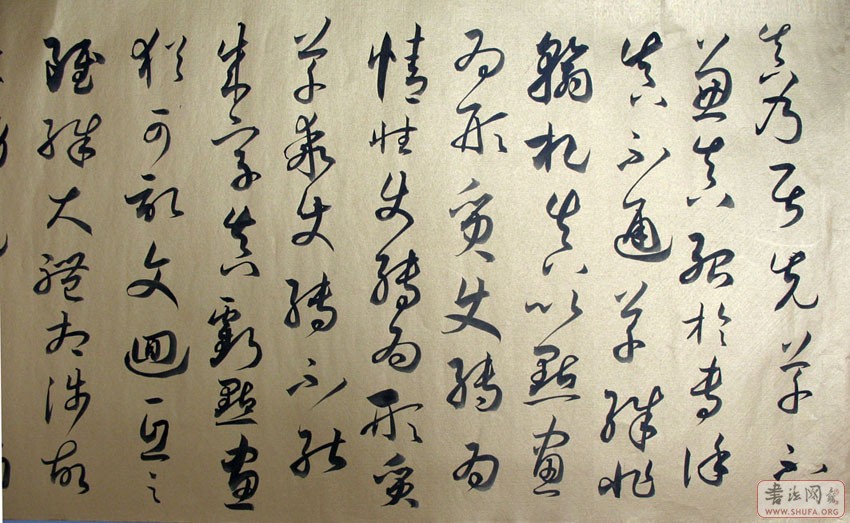 真乃居先草不
兼真殆於專謹
真不通草殊非
翰札真以點畫
為形質使轉為
情性使轉為形質
草乖使轉不能
成字真虧點畫
猶可記文迴互
雖殊大體相涉故
書法网
WWW.SHUFA.ORG